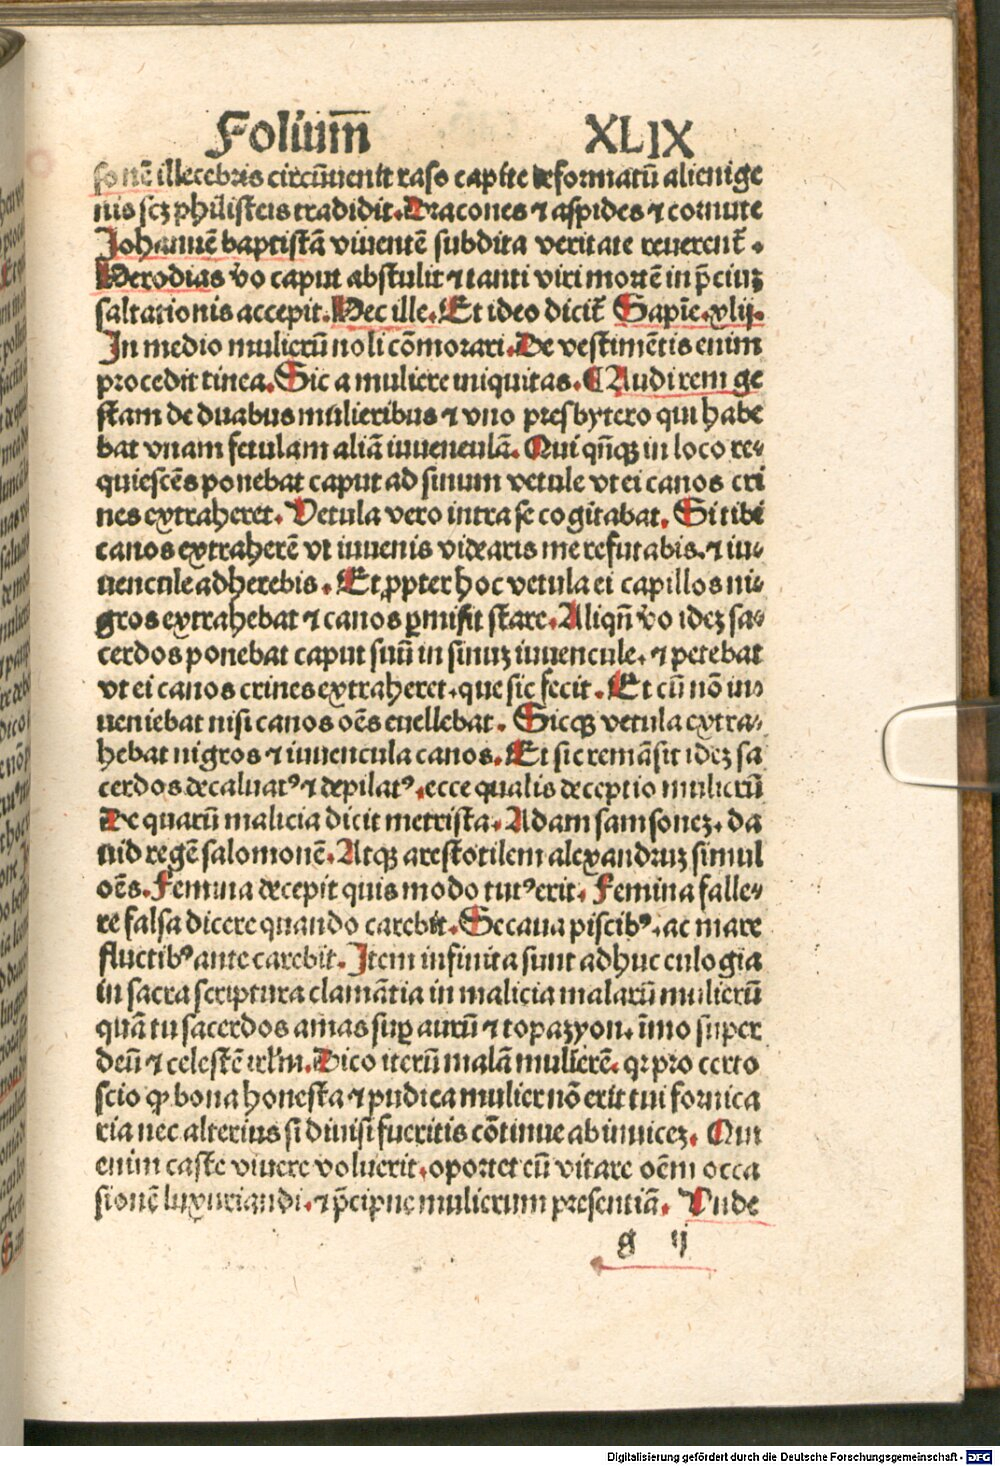 Folium̄ XLIX
sonē illecebris circūuenit raso capite deformatū alienige
nis scꝫ philisteis tradidit. Dracones ⁊ aspides ⁊ cornute
Johannē baptistā viuentē subdita veritate reuerent̄.
Herodias v̄o caput abstulit ⁊ tanti viri mortē in p̄ciuꝫ
saltationis accepit. Hec ille. Et ideo dicit̄ Sapiē. xlij.
In medio mulierū noli cōmorari. De vestimētis enim
procedit tinea. Sic a muliere iniquitas. ¶ Audi rem ge
stam de duabus mulieribus ⁊ vno presbytero qui habe
bat vnam fetulam aliā iuuenculā. Qui qn̄qꝫ in loco re⸗
quiescēs ponebat caput ad sinum vetule vt ei canos cri
nes extraheret. Vetula vero intra se cogitabat. Si tibi
canos extraherē vt iuuenis videaris me refutabis. ⁊ iu⸗
uencule adherebis. Et ꝓpter hoc vetula ei capillos ni⸗
gros extrahebat ⁊ canos ꝑmisit stare. Aliqn̄ v̄o ideꝫ sa⸗
cerdos ponebat caput suū in sinuꝫ iuuencule. ⁊ petebat
vt ei canos crines extraheret. que sic fecit. Et cū nō in⸗
ueniebat nisi canos oēs euellebat. Sicqꝫ vetula extra⸗
hebat nigros ⁊ iuuencula canos. Et sic remāsit ideꝫ sa
cerdos decaluatꝰ ⁊ depilatꝰ. ecce qualis deceptio mulierū
De quarū malicia dicit metrista. Adam samsoneꝫ. da
uid regē salomonē. Atqꝫ arestotilem alexandruꝫ simul
oēs. Femina decepit quis modo tutꝰ erit. Femina falle⸗
re falsa dicere quando carebit. Secana piscibꝰ. ac mare
fluctibꝰ ante carebit. Item infinita sunt adhuc eulogia
in sacra scriptura clamātia in malicia malarū mulierū
quā tu sacerdos amas suꝑ aurū ⁊ topazyon. īmo super
deū ⁊ celestē irl̄m. Dico iterū malā mulierē. qꝛ pro certo
scio ꝙ bona honesta ⁊ pudica mulier nō erit tui fornica
ria nec alterius si diuisi fueritis cōtinue ab inuiceꝫ. Qui
enim caste viuere voluerit. oportet eū vitare oēm occa
sionē luxuriandi. ⁊ p̄cipue mulierum presentiā. Vnde
g ij
Digitalisierung gefördert durch die Deutsche Forschungsgemeinschaft - DFG